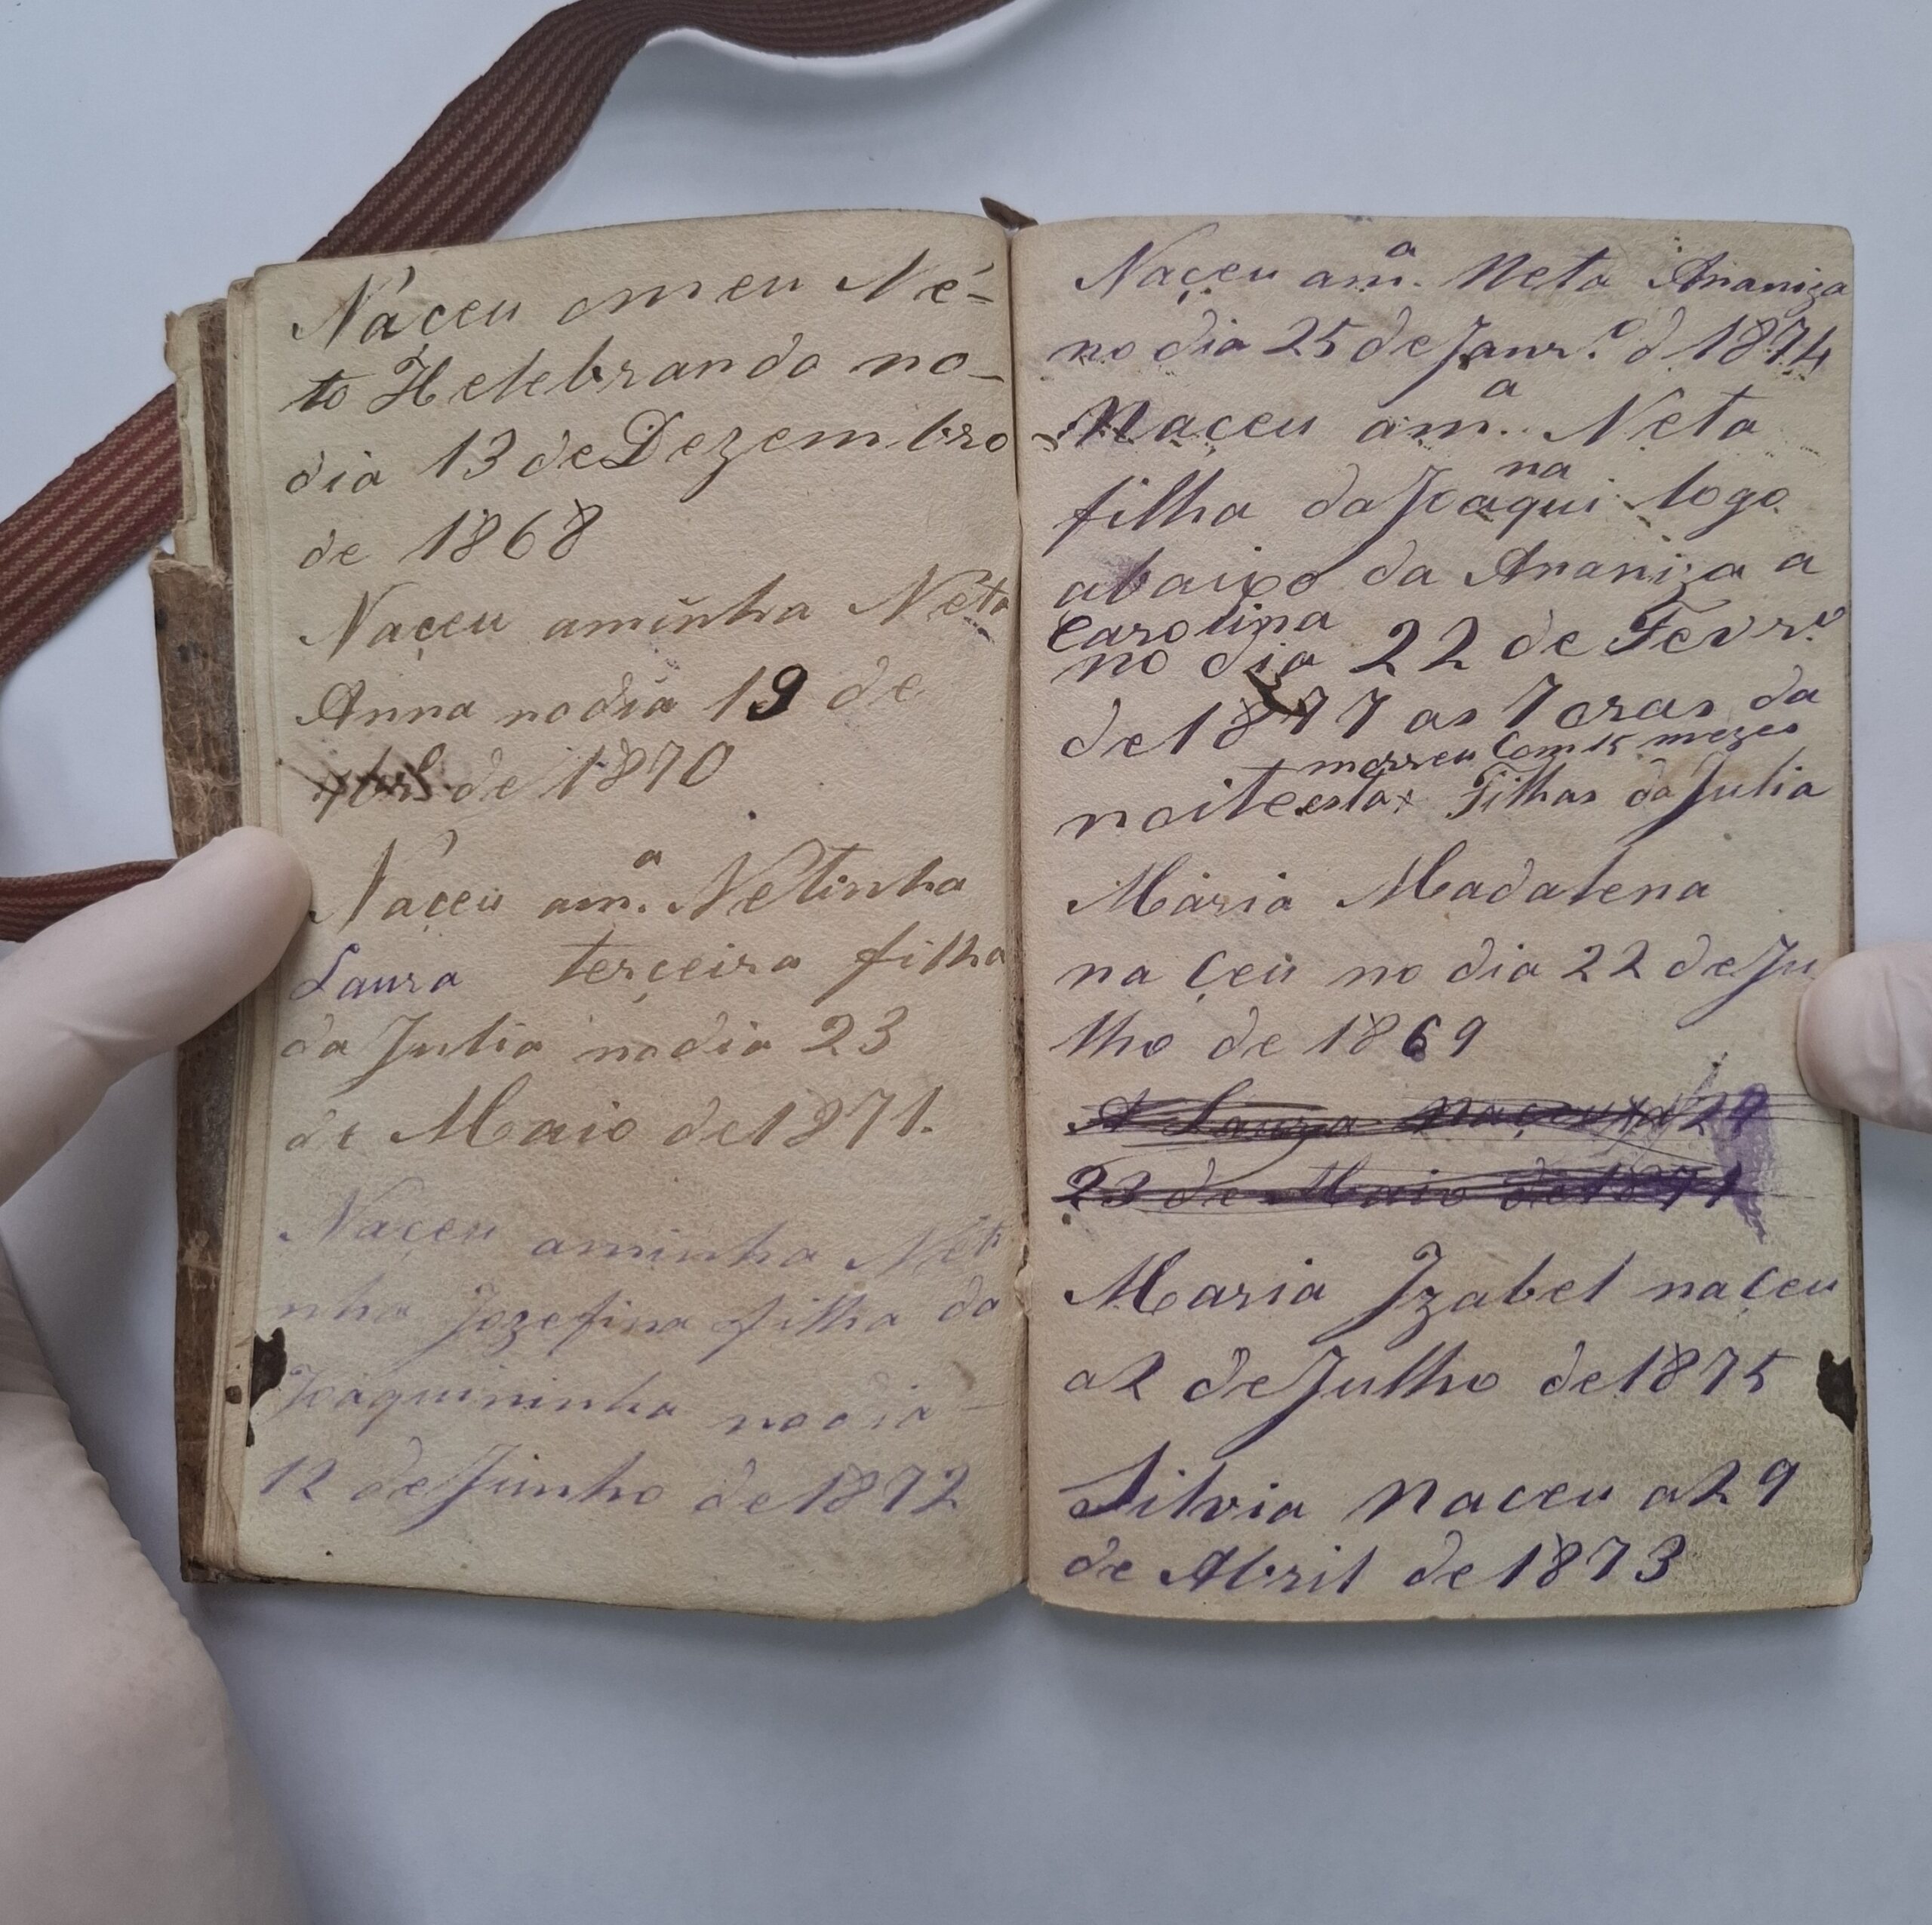 Náceu omeu Né-
to Helebrando no-
dia 13 de Dezembro
de 1868
Naçeu aminha Néta
Anna nodia 19 de
de 1870
Náçeu am.a Netinha
Laura terçeira filha
da Julia nodia 23
de Maio de 1871.
Naçeu aminha Néti
nha Jozefina filha da
Joaquininha nodia -
12 de Junho de 1872
Naçeu am.a Neta Ananiza
no dia 25 de Janr.o d 1874
Naçeu am.a Neta
filha da Joaquina logo
abaixo da Ananiza a
Carolina
no dia 22 de Fevr.o
de 1877 as 7 oras da
morreu Com 15 mezes
noite esta x Filhas da Julia
Maria Madalena
na Çeu no dia 22 de Ju
lho de 1869
A Laura naçeu
23 de Maio de 1871
Maria Izabel naçeu
a2 de Julho de 1875
Silvia naceu a29
de Abril de 1873